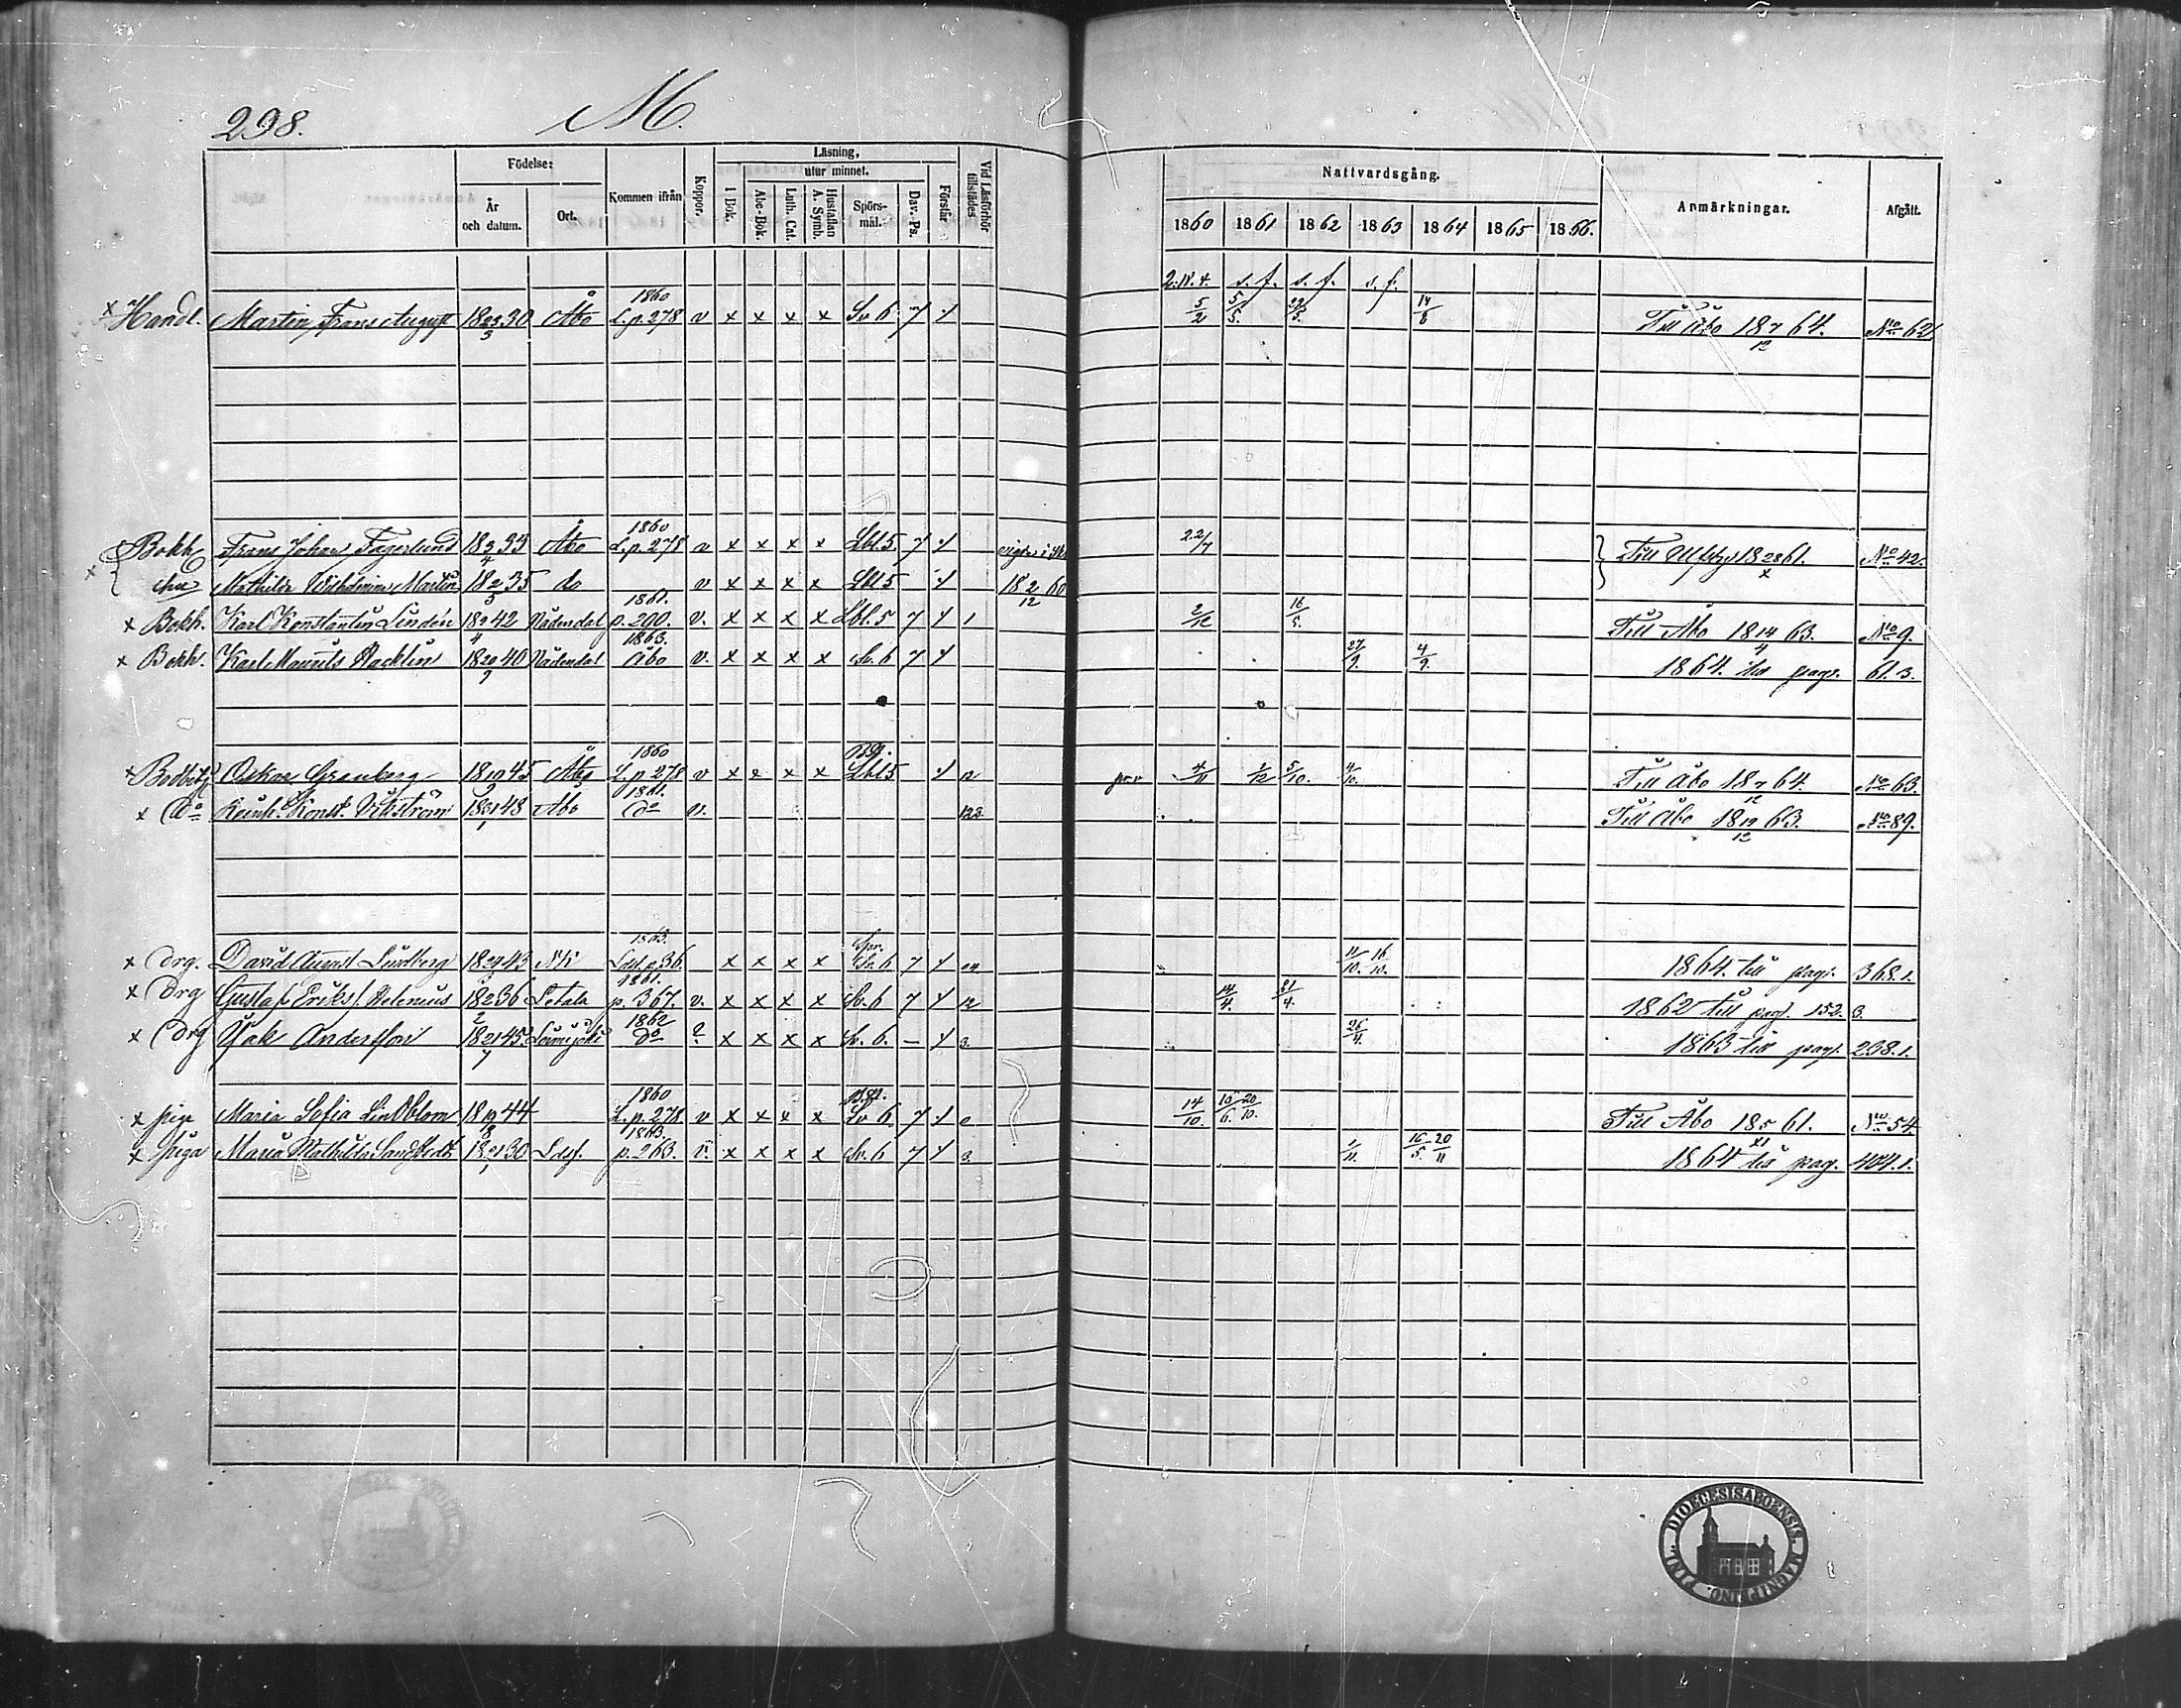 298. M.
Födelse: Läsning, Nattvardsgång.
År och datum. Ort. Kommen ifrån Koppor. I Bok. utur minnet. Abc-Bok. Luth. Cat. Hustaflan A. Symb. Spörs-mål. Dav.-Ps. Förstår Vid Läsförhör tillstädes 1860 1861 1862 1863 1864 1865 1866. Anmärkningar. Afgått.
1860 2.18.4. s. f. s. f. s. f.
x Handl. Martin, Frans August 18 23/3 30 Åbo L.p.278 v x x x x Sv 6 7 5/2 5/5. 14/8 Till Åbo 18 7/12 64. No 62
1860
Bokh Frans Johan Fagerlund 18 33 Åbo L.p.278 v x x x x Lbl.5 7 22/4 Till 18 28 61. No 42.
x Mathilda Wilhelmina Martin 18 2/5 35 do v x x x x Lbl 5 18 2/12 60
1861.
x Bokh. Karl Konstantin Lindén 18 42 Nådendal p.200. v. x x x x Lbl.5 7 1 2/12 16/5. Till Åbo 18 14/4 63. No 9.
1863.
x Bokh. Karl Maurits Hacklin 18 20/9 40 Nådendal Åbo v. x x x x Sv. 6 7 27/9. 4/9. 1864. till pag. 61.3.
1860
x Oskar Grenberg 18 19 45 Åbo L.p.278 v x x x x Lbl 5 1/12 5/10. Till Åbo 18 7/12 64. No 63.
1861.
x Do Konst. Vikström 18 31/1 48 Åbo Do v. Till Åbo 18 19/12 63. No 89.
1863. Spr.
x Drg. David August Lundberg 18 24 43 p.36. x x x x Sv.6 7 11/10. 16/10. 1864. till pag. 368.1.
1861.
x Drg Gustaf Eriks. Helenius 18 2/2 36 Letala p.367. v. x x x x Sv. 6 7 12 14/4. 31/4. 1862 till pag. 152.3.
1862
x Drg Isak Andersson 18 21/7 45. Loimijoki Do x x x x Sv. 6. – 3. 26/4. 1863 till pag. 238.1.
1860
x pig Maria Sofia Lindblom 18 19/8 44 L.p.278 v x x x x Sv 6 7 14/10. 10/6. 20/10. Till Åbo 18 5/11 61. No 54.
1863.
x piga Maria Mathilda Sandstedt 18 21/1 30 p.263. v. x x x x Sv.6 7 3. 1/11. 16/5. 20/11 1864 till pag. 404.1.
DIOECESIS ABOENSIS. MAGNI PRINC. FINL.